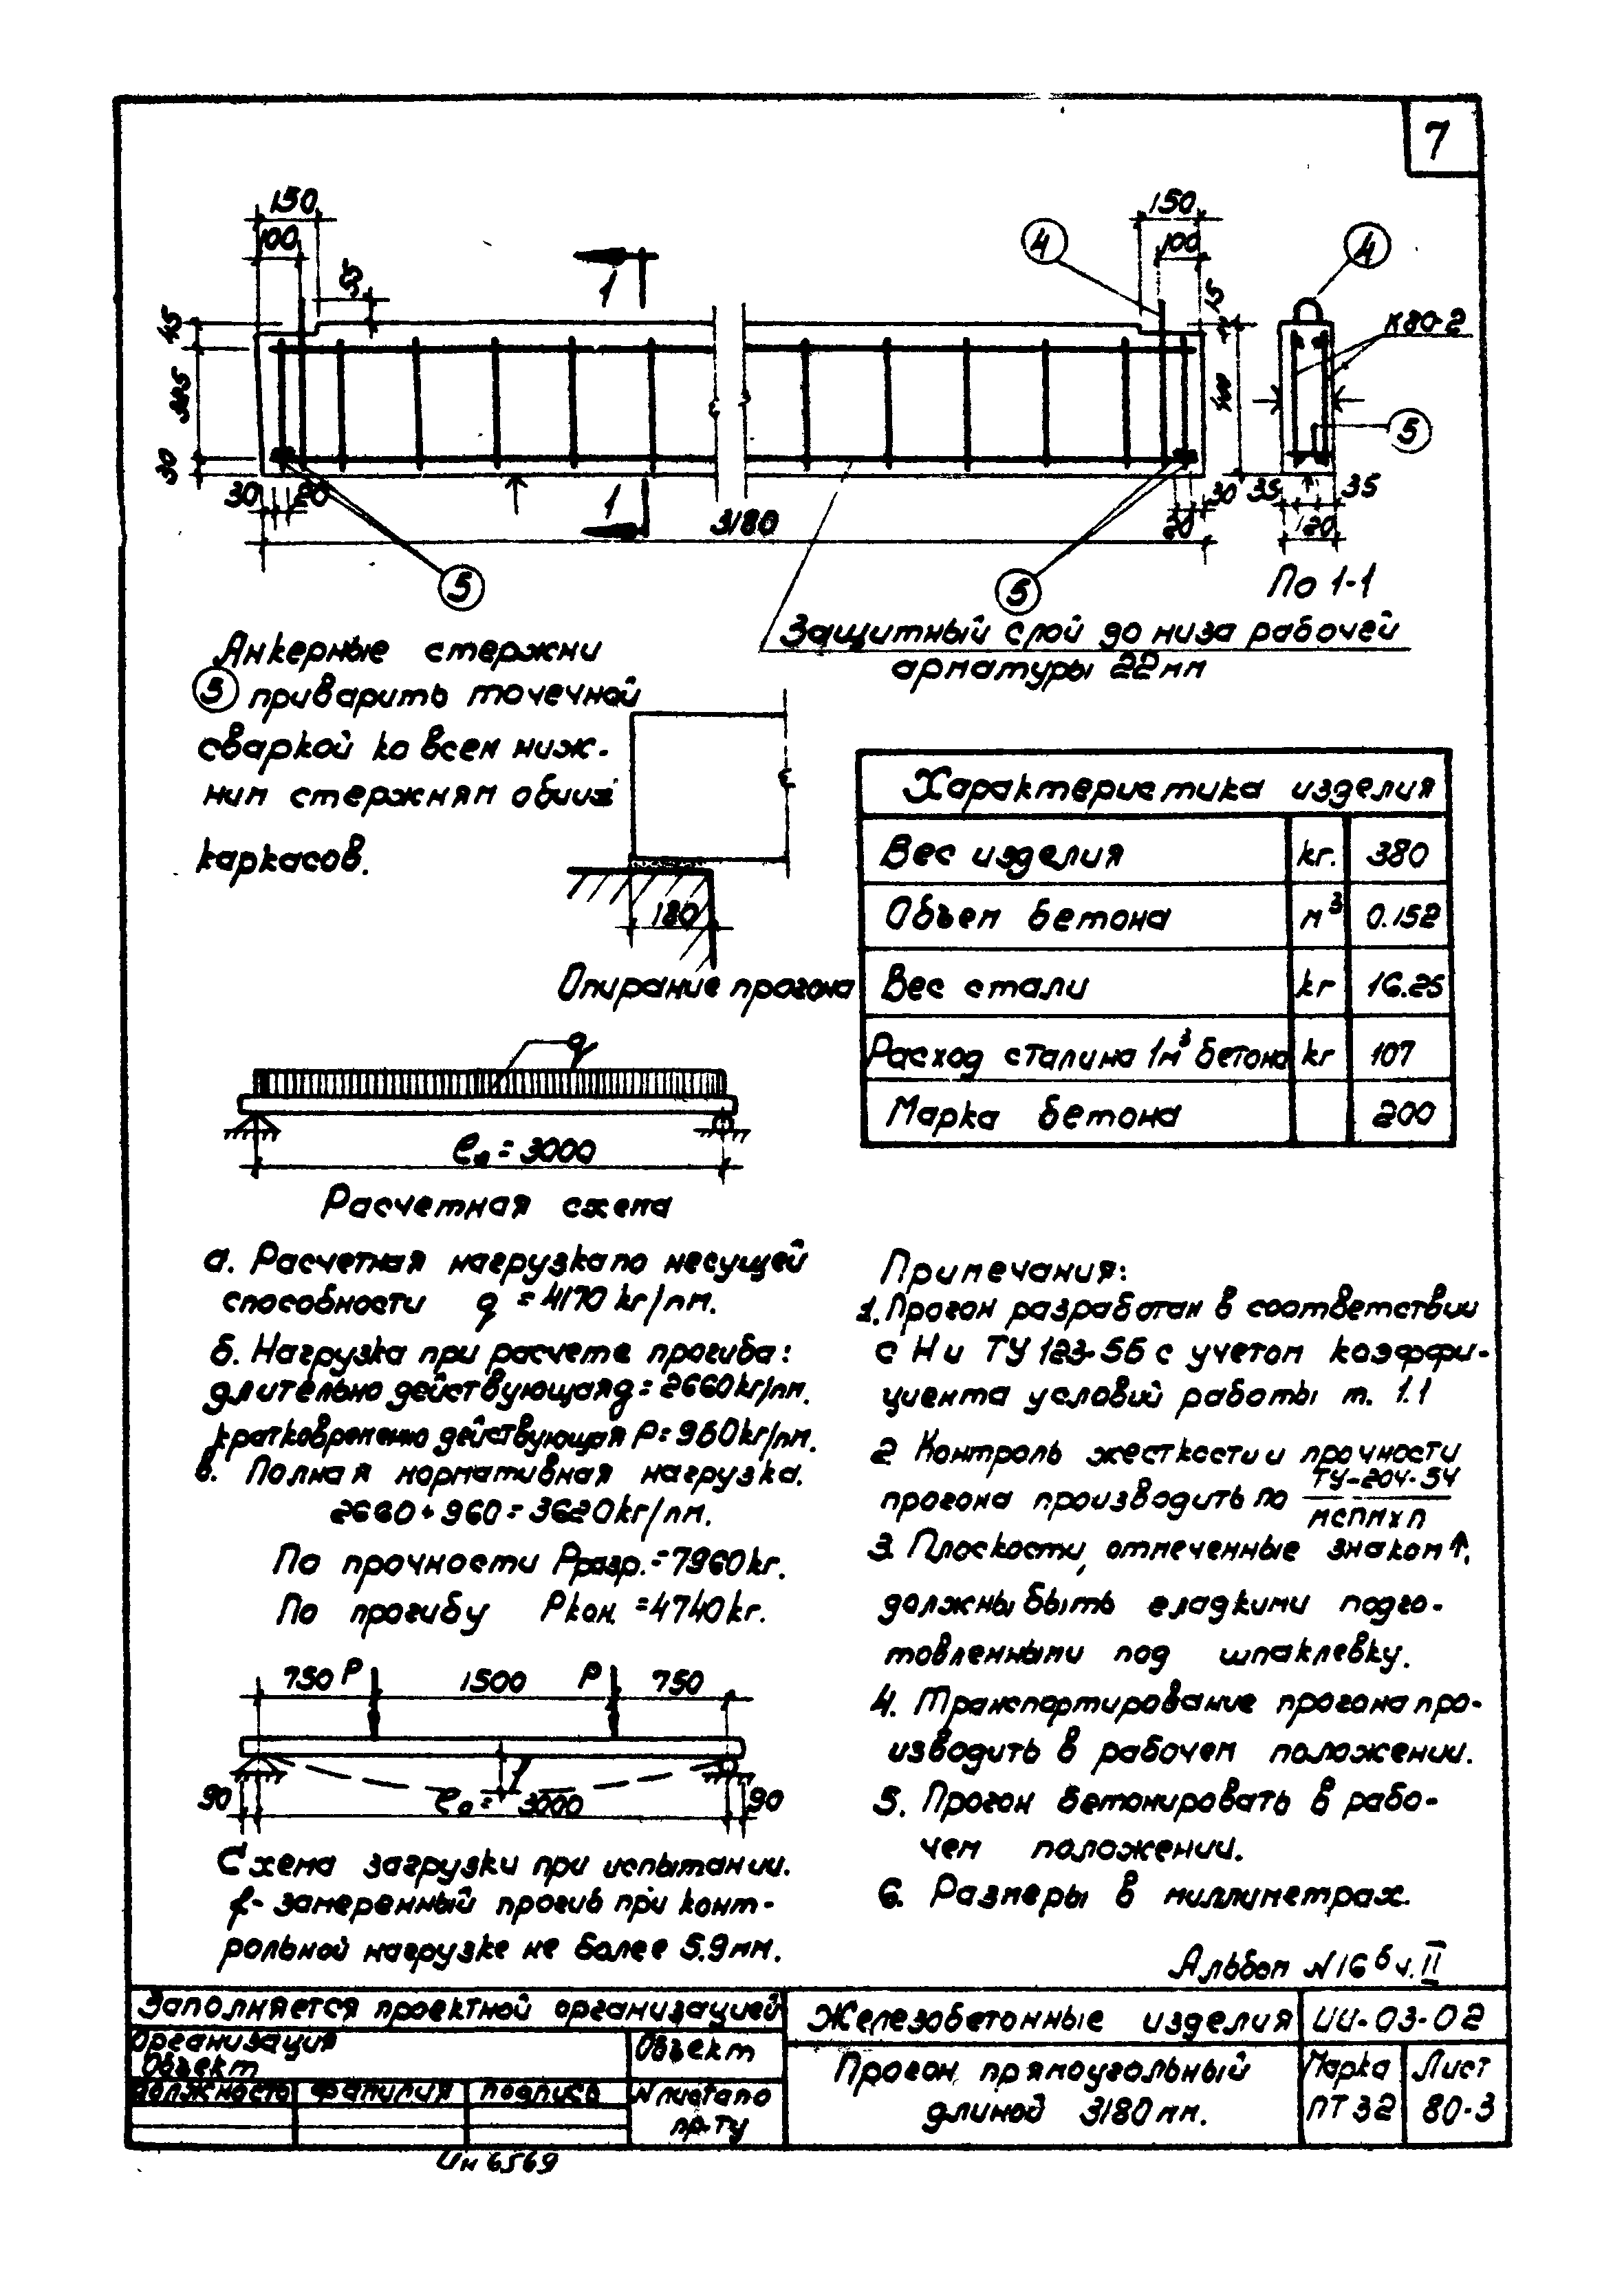 7
150
100
45
325
30
30 20
1
1
3180
4
150
100
15
400
20 30
5
5
4
К80-2
5
35 35
120
По 1-1
Защитный слой до низа рабочей
арматуры 22мм
Анкерные стержни
5 приварить точечной
сваркой ко всем ниж-
ним стержням обоих
каркасов.
180
Опирание прогона
Характеристика изделия
Вес изделия kг. 380
Объем бетона м³ 0.152
Вес стали kг 16.25
Расход стали на 1м³ бетона kг 107
Марка бетона 200
q
ℓо = 3000
Расчетная схема
а. Расчетная нагрузка по несущей
способности q = 4170 kг/пм.
б. Нагрузка при расчете прогиба:
длительно действующая g = 2660 kг/пм.
кратковременно действующая P = 960 kг/пм.
в. Полная нормативная нагрузка.
2660 + 960 = 3620 kг/пм.
По прочности Рразр. = 7960 kг.
По прогибу Ркон. = 4740 kг.
750 Р 1500 Р 750
90 ℓо = 3000 90
f
Схема загрузки при испытании.
f - замеренный прогиб при конт-
рольной нагрузке не более 5.9 мм.
Примечания:
1. Прогон разработан в соответствии
с Н и ТУ 123-55 с учетом коэффи-
циента условий работы m. 1.1
2 Контроль жесткости и прочности
прогона производить по ТУ-204-54
мспмхп
3. Плоскости, отмеченные знаком ↑,
должны быть гладкими подго-
товленными под шпаклевку.
4. Транспортирование прогона про-
изводить в рабочем положении.
5. Прогон бетонировать в рабо-
чем положении.
6. Размеры в миллиметрах.
Альбом N 16б ч. II
Заполняется проектной организацией
Организация
Объект
Объект
должность фамилия подпись
N листа по
пр-ту
Железобетонные изделия ИИ-03-02
Прогон прямоугольный
длиной 3180 мм.
Марка
ПТ 32
Лист
80-3
Ин 6569